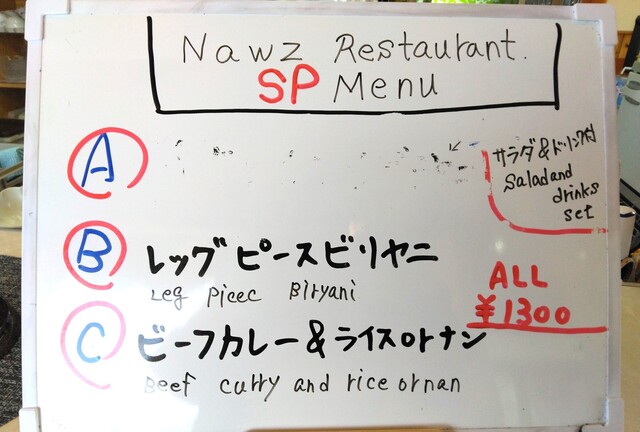 Nawz Restaurant.
SP Menu
A
サラダ&ドリンク付
Salad and
drinks
set
B
レッグピースビリヤニ
Leg picec Biryani
ALL
¥1300
C
ビーフカレー&ライスorナン
Beef curry and rice ornan